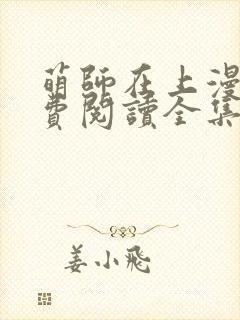 萌師在上漫
費閱讀全集
姜小飛